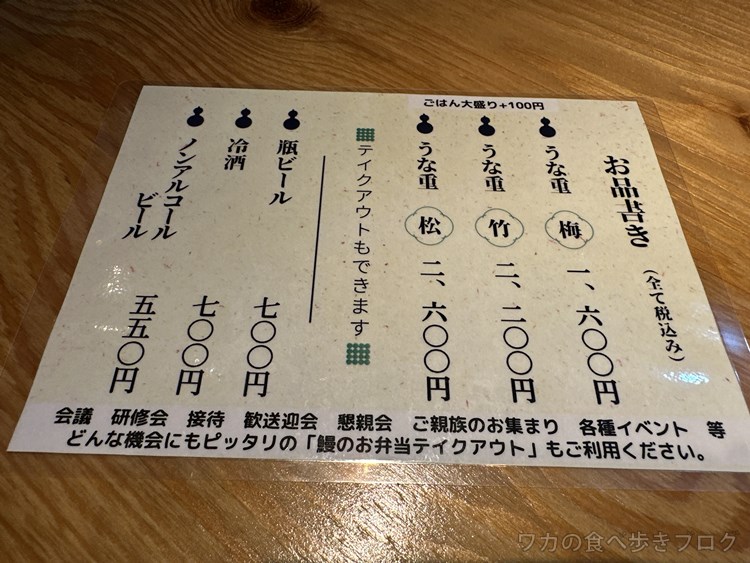 ごはん大盛り+100円
お品書き
(全て税込み)
うな重 梅 一、六〇〇円
うな重 竹 二、二〇〇円
うな重 松 二、六〇〇円
テイクアウトもできます
瓶ビール 七〇〇円
冷酒 七〇〇円
ノンアルコール
ビール 五五〇円
会議 研修会 接待 歓送迎会 懇親会 ご親族のお集まり 各種イベント 等
どんな機会にもピッタリの「鰻のお弁当テイクアウト」もご利用ください。
ワカの食べ歩きブログ